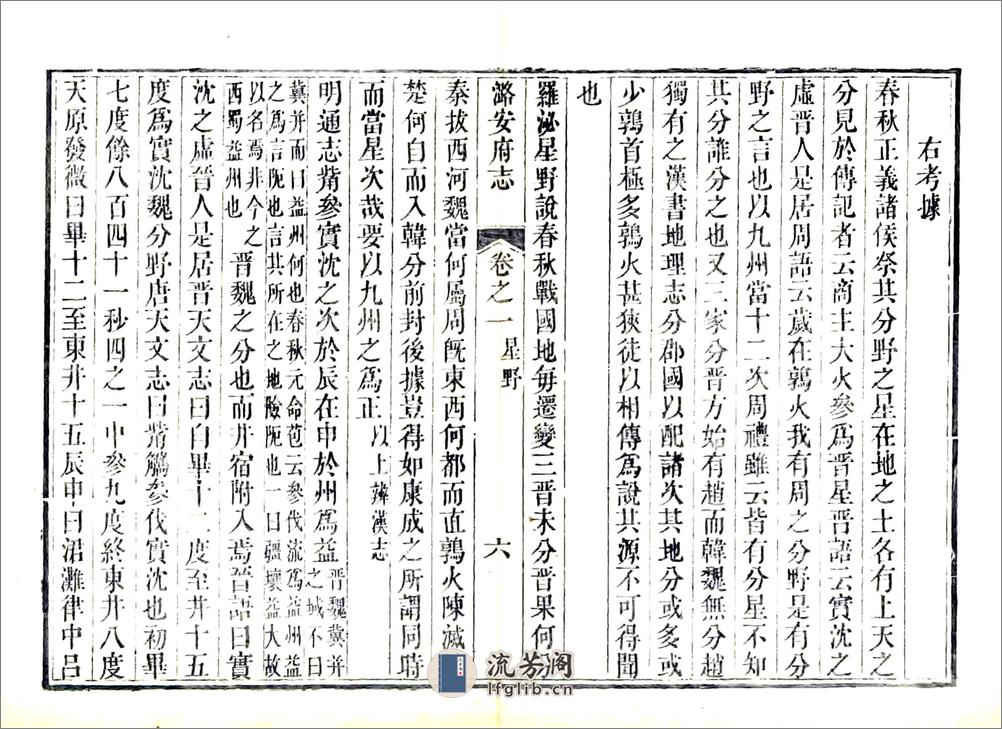 右考據
春秋正義諸侯祭其分野之星在地之土各有上天之
分見於傳記者云商主大火參爲晉星晉語云實沈之
虛晉人是居周語云歲在鶉火我有周之分野是有分
野之言也以九州當十二次周禮雖云皆有分星不知
其分誰分之也又三家分晉方始有趙而韓魏無分趙
獨有之漢書地理志分郡國以配諸次其地分或多或
少鶉首極多鶉火甚狹徒以相傳爲說其源不可得聞
也
羅泌星野說春秋戰國地每遷變三晉未分晉果何
潞安府志 卷之一 星野 六
秦拔西河魏當何屬周旣東西何都而直鶉火陳滅
楚何自而入韓分前封後據豈得如康成之所謂同時
而當星次哉要以九州之爲正 以上辨漢志
明通志觜參實沈之次於辰在申於州爲益 晉魏冀并之域不曰
冀并而曰益州何也春秋元命苞云參伐流爲益州益
之爲言阨也言其所在之地險阨也一曰疆壤益大故
以名焉非今之西蜀益州也 晉魏之分也而井宿附入焉晉語曰實
沈之虛晉人是居晉天文志曰自畢十二度至井十五
度爲實沈魏分野唐天文志曰觜觿參伐實沈也初畢
七度餘八百四十一秒四之一中參九度終東井八度
天原發微曰畢十二至東井十五辰申曰涒灘律中呂
流芳阁
lfglib.cn